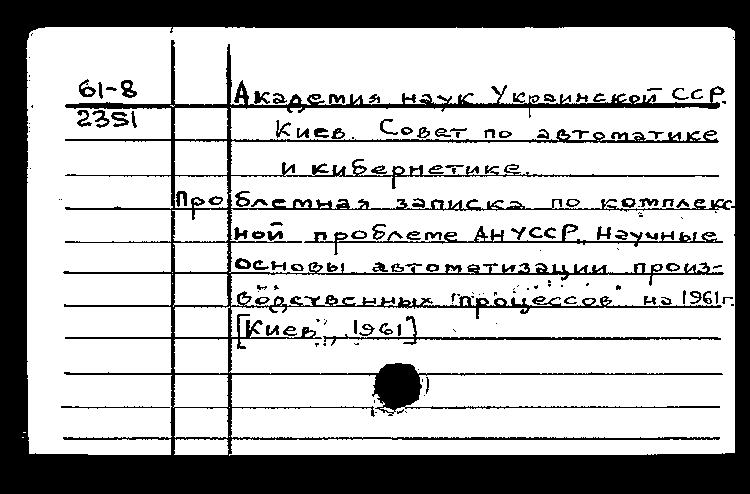 61-8
2351
Академия наук Украинской ССР.
Киев. Совет по автоматике
и кибернетике.
Проблемная записка по комплекс-
ной проблеме АН УССР „Научные
основы автоматизации произ-
водственных процессов" на 1961 г.
[Киев, 1961]